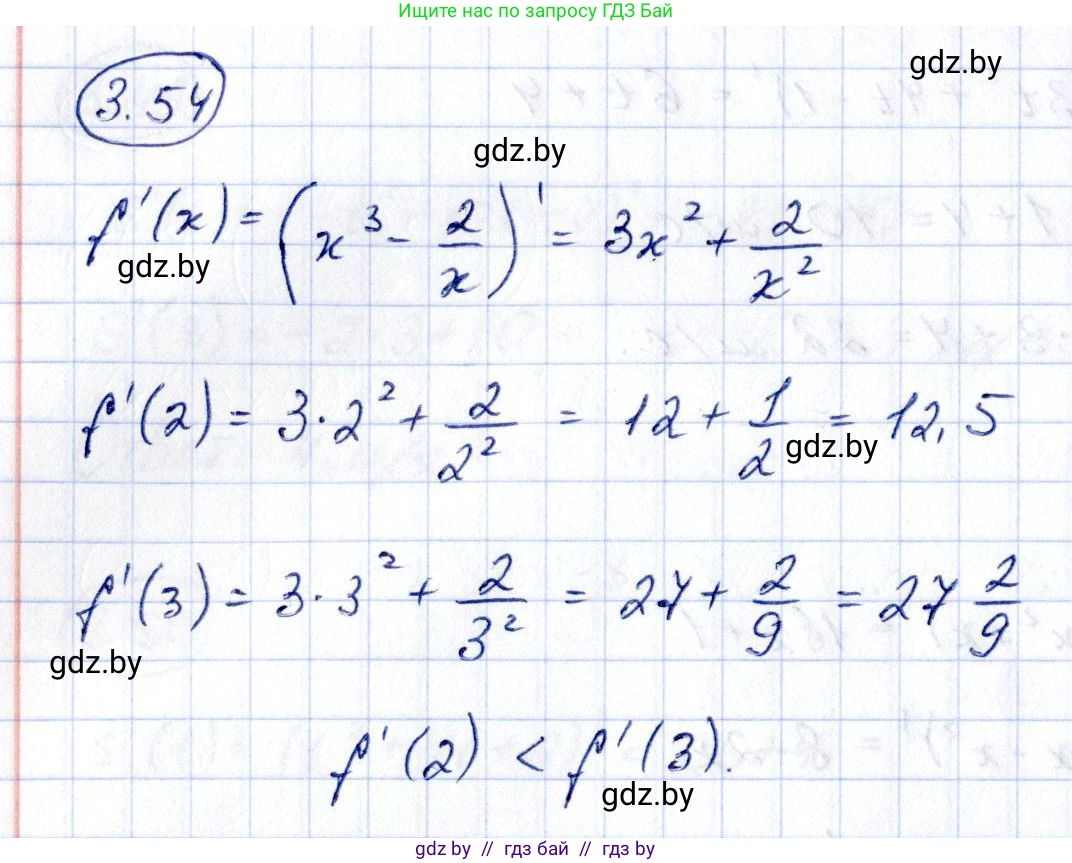 Ищите нас по запросу ГДЗ Бай
gdz.by
3.54
gdz.by
f'(x) = (x³ - 2/x)' = 3x² + 2/x²
gdz.by
f'(2) = 3·2² + 2/2² = 12 + 1/2 = 12,5
gdz.by
f'(3) = 3·3² + 2/3² = 27 + 2/9 = 27 2/9
gdz.by
f'(2) < f'(3).
gdz.by
gdz.by // гдз бай // гдз by